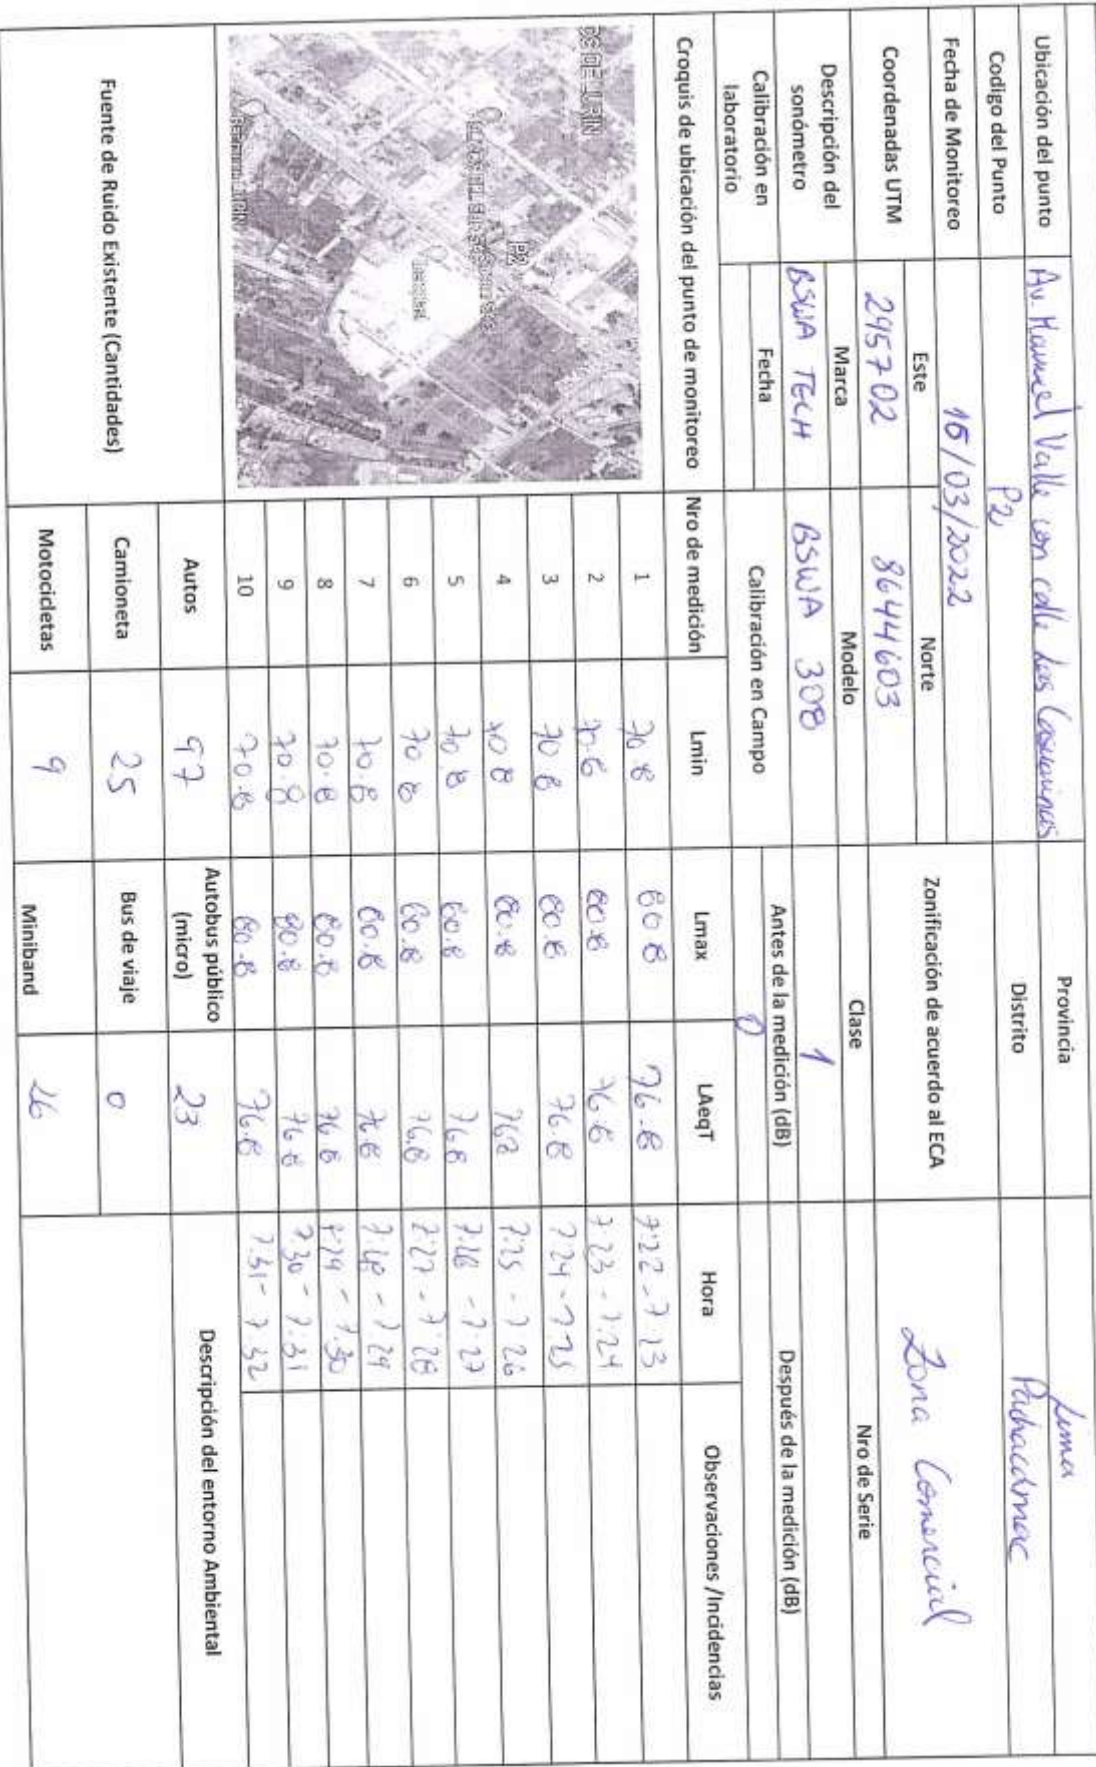 Ubicación del punto Av. Manuel Valle con calle Los Provincia Lima
Codigo del Punto P2 Distrito Pachacámac
Fecha de Monitoreo 15/03/2022 Zonificación de acuerdo al ECA Zona Comercial
Coordenadas UTM Este Norte
295702 8644603
Descripción del sonómetro Marca Modelo Clase Nro de Serie
BSWA TECH BSWA 308 1
Calibración en laboratorio Fecha Calibración en Campo Antes de la medición (dB) Después de la medición (dB)
0
Croquis de ubicación del punto de monitoreo Nro de medición Lmin Lmax LAeqT Hora Observaciones /Incidencias
P2
1 70.8 80.8 76.8 7:22 - 7:23
2 70.8 80.8 76.8 7:23 - 7:24
3 70.8 80.8 76.8 7:24 - 7:25
4 70.8 80.8 76.8 7:25 - 7:26
5 70.8 80.8 76.8 7:26 - 7:27
6 70.8 80.8 76.8 7:27 - 7:28
7 70.8 80.8 76.8 7:28 - 7:29
8 70.8 80.8 76.8 7:29 - 7:30
9 70.8 80.8 76.8 7:30 - 7:31
10 70.8 80.8 76.8 7:31 - 7:32
Fuente de Ruido Existente (Cantidades) Autos 97 Autobus público (micro) 23 Descripción del entorno Ambiental
Camioneta 25 Bus de viaje 0
Motocicletas 9 Miniband 26